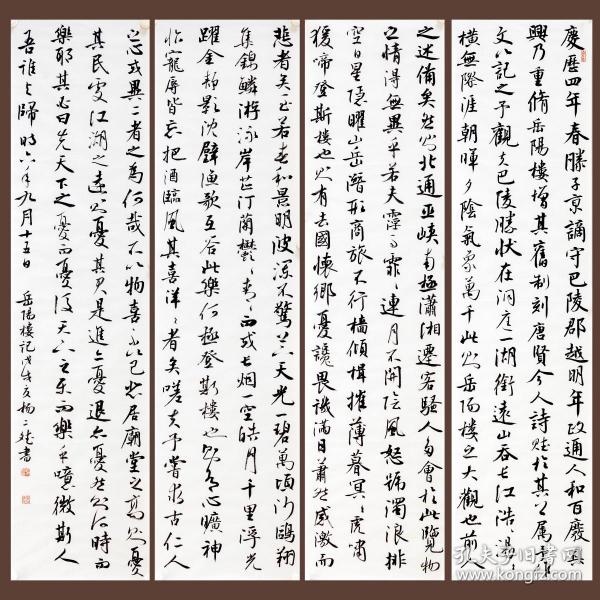 慶曆四年春滕子京謫守巴陵郡越明年政通人和百廢具
興乃重脩岳陽樓增其舊制刻唐賢今人詩賦於其上屬予作
文以記之予觀夫巴陵勝狀在洞庭一湖銜遠山吞長江浩浩湯湯
橫無際涯朝暉夕陰氣象萬千此則岳陽樓之大觀也前人
之述備矣然則北通巫峽南極瀟湘遷客騷人多會於此覽物
之情得無異乎若夫霪雨霏霏連月不開陰風怒號濁浪排
空日星隱曜山岳潛形商旅不行檣傾楫摧薄暮冥冥虎嘯
猿啼登斯樓也則有去國懷鄉憂讒畏譏滿目蕭然感激而
悲者矣至若春和景明波瀾不驚上下天光一碧萬頃沙鷗翔
集錦鱗游泳岸芷汀蘭鬱鬱青青而或長烟一空皓月千里浮光
躍金靜影沈璧漁歌互答此樂何極登斯樓也則有心曠神
怡寵辱皆忘把酒臨風其喜洋洋者矣嗟夫予嘗求古仁人
之心或異二者之為何哉不以物喜不以己悲居廟堂之高則憂
其民處江湖之遠則憂其君是進亦憂退亦憂然則何時而
樂耶其必曰先天下之憂而憂後天下之樂而樂乎噫微斯人
吾誰與歸時六年九月十五日
岳陽樓記戊戌夏楊
書
孔夫子旧书网
www.kongfz.com